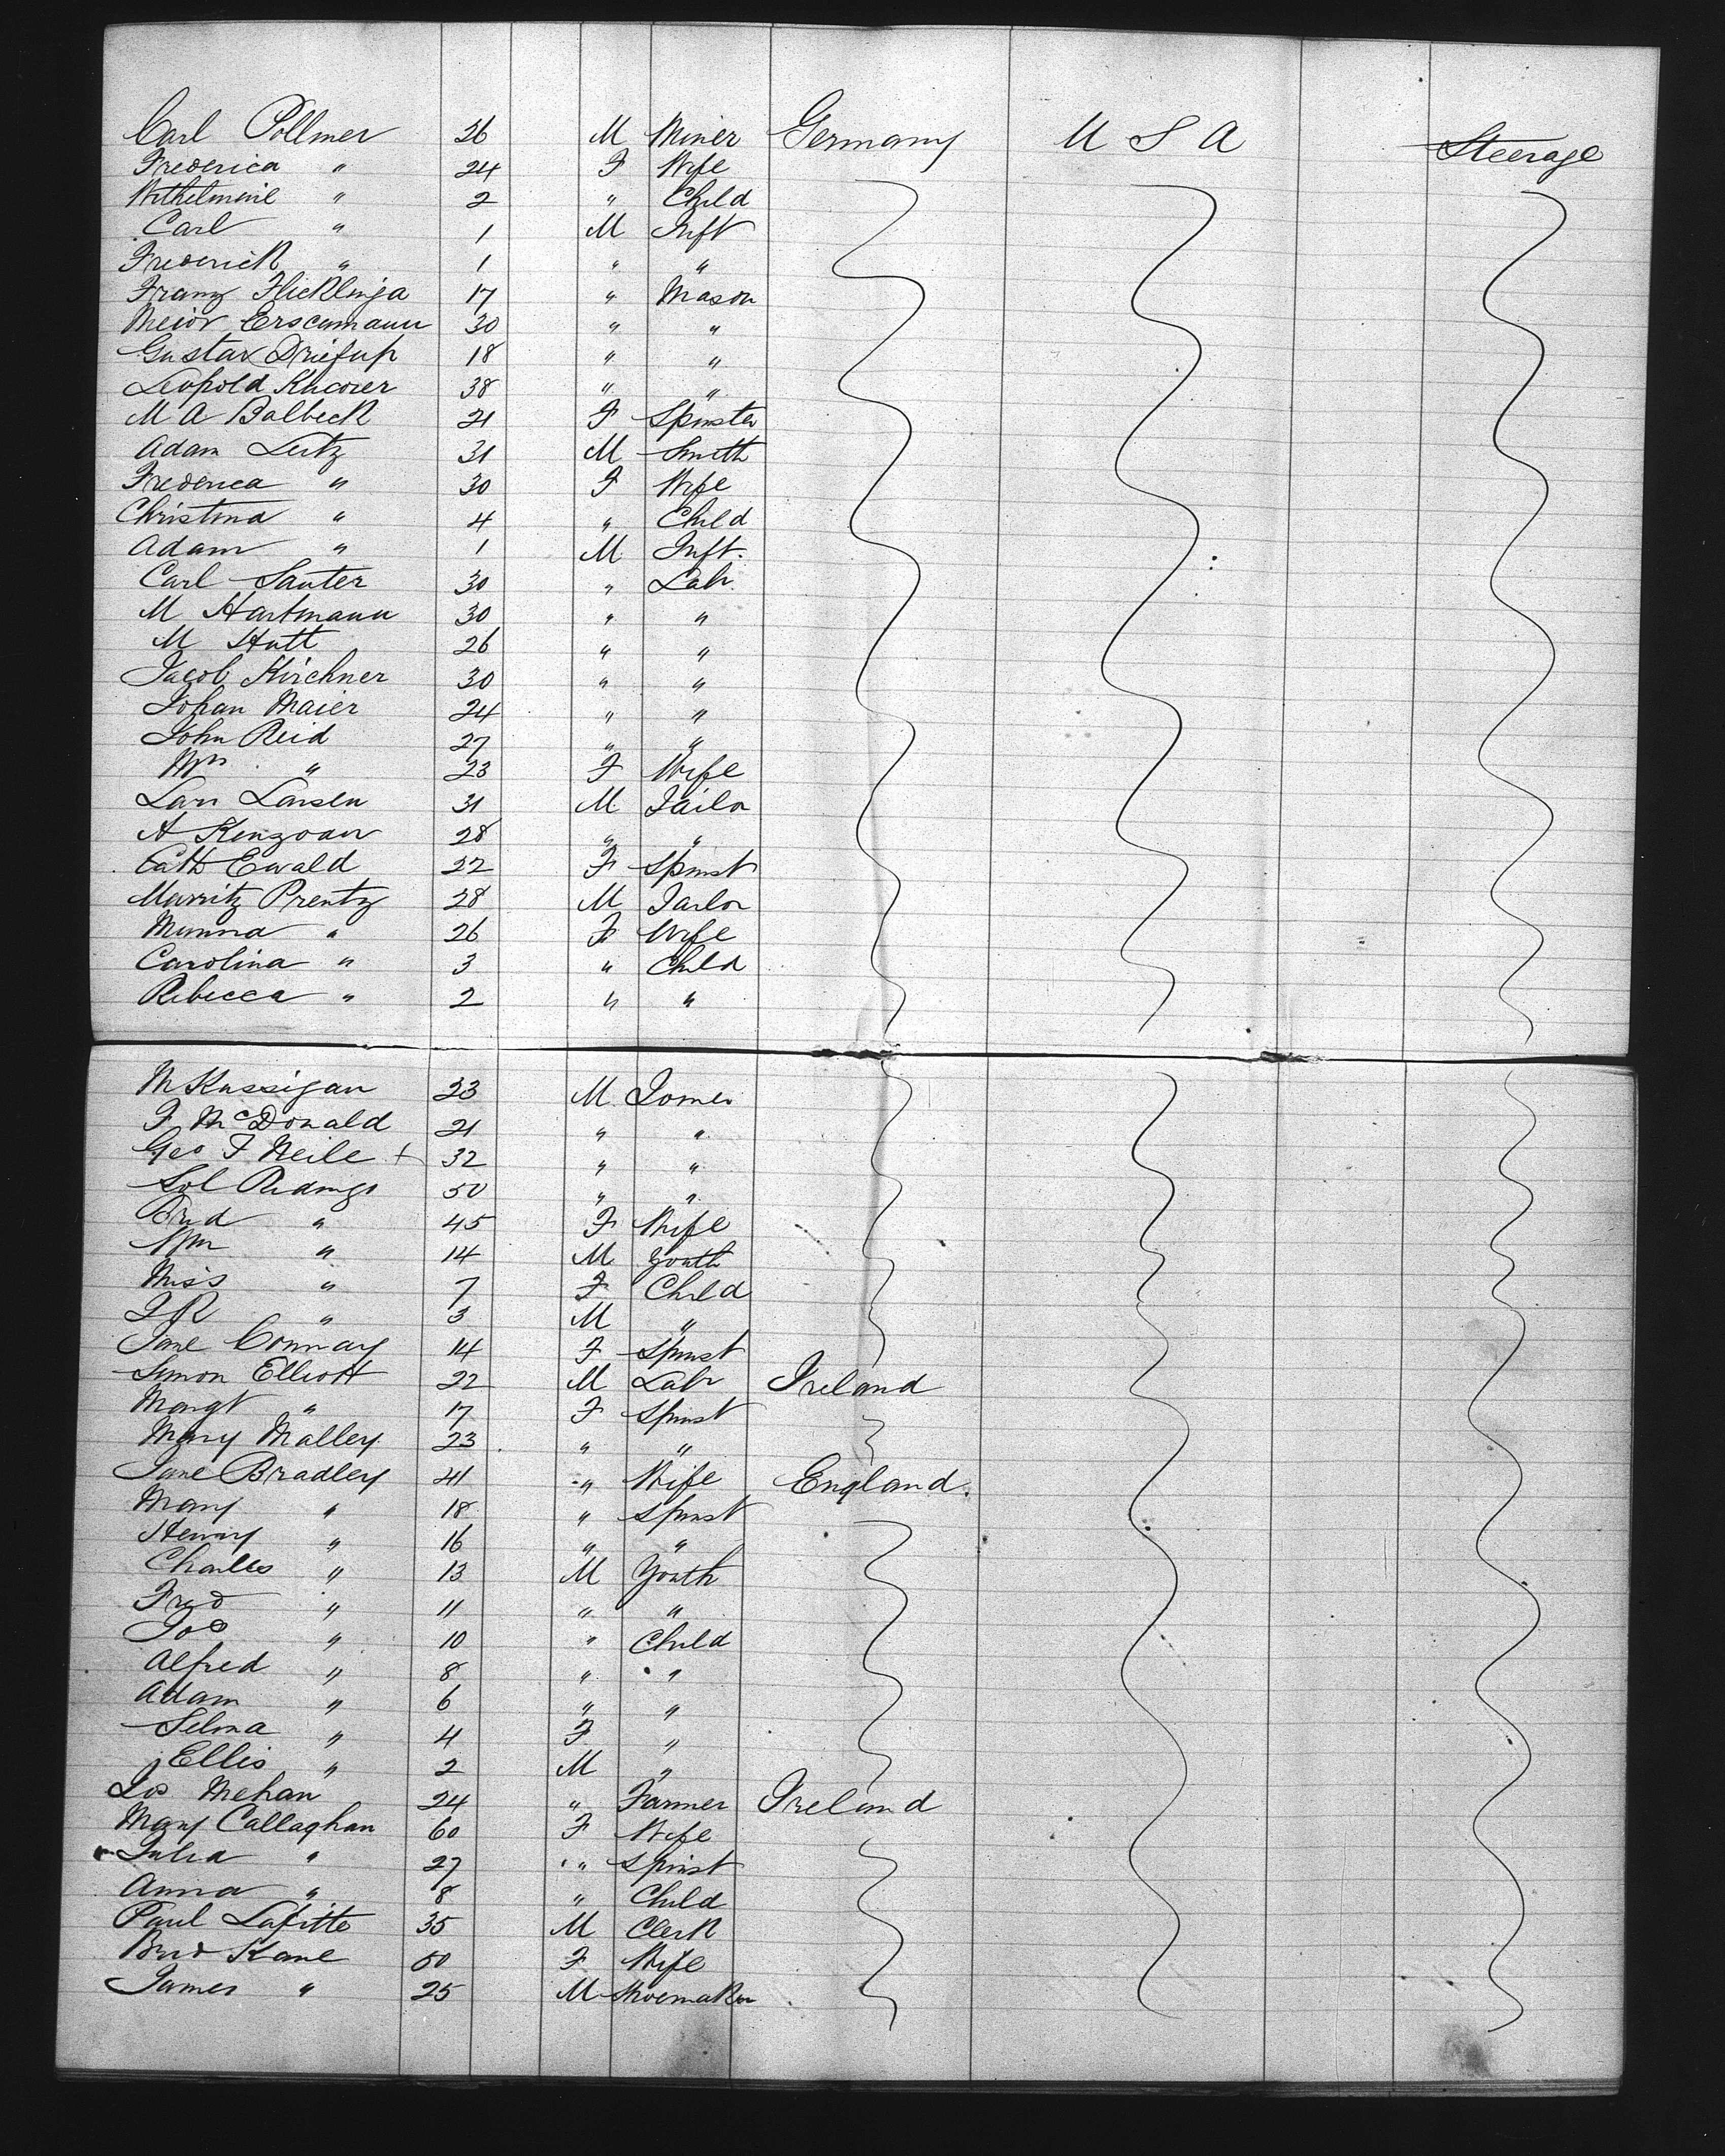 Carl Pollmer 26 M Miner Germany U S A Steerage
Frederica " 24 F Wife
Wilhelmine " 2 " Child
Carl " 1 M Inft
Frederick " 1 " "
Franz 17 " Mason
30 " "
Gustav 18 " "
Leopold 38 " "
M A Balbeck 21 F Spinster
Adam Lutz 31 M Smith
Frederica " 30 F Wife
Christina " 4 " Child
Adam " 1 M Inft.
Carl Sauter 30 " Labr.
M Hartmann 30 " "
M Hutt 26 " "
Jacob Kirchner 30 " "
Johan Maier 24 " "
John Reid 27 " "
Mrs " 23 F Wife
Lars Larsen 31 M Tailor
A 28 " "
Cath Ewald 22 F Spinst
Morritz Prentz 28 M Tailor
Minna " 26 F Wife
Carolina " 3 " Child
Rebecca " 2 " "
M Kussigan 23 M
F McDonald 21 " "
Geo F Neile + 32 " "
Sol Ridings 50 " "
Brid " 45 F Wife
Wm " 14 M Youth
Miss " 7 F Child
J R " 3 M "
Jane Connay 14 F Spinst
Simon Elliott 22 M Labr Ireland
Margt " 17 F Spinst
Mary Malley 23 " "
Jane Bradley 41 " Wife England.
Mary " 18 " Spinst
Henny " 16 " "
Charles " 13 M Youth
Fred " 11 " "
Jos " 10 " Child
Alfred " 8 " "
Adam " 6 " "
Selma " 4 F "
Ellis " 2 M "
Jos Mehan 24 " Farmer Ireland
Mary Callaghan 60 F Wife
Julia " 27 " Spinst
Anna " 8 " Child
Paul Lafitte 35 M Clerk
Brid Kane 50 F Wife
James " 25 M Shoemaker